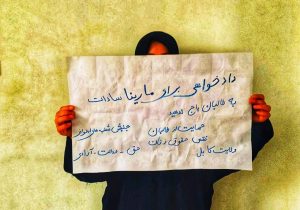 دادخواهی برای مارینا سادات
به طالبان باج ندهید
حمایت از طالبان
نقض حقوق زنان
ولایت کابل
حق - عدالت - آزادی